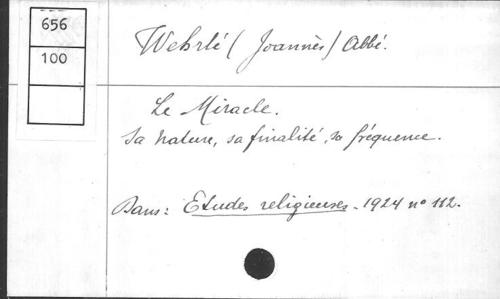 656
100
Wehrlé (Joannès) Abbé.
Le Miracle.
Sa nature, sa finalité, sa fréquence.
Dans: Etudes religieuses - 1924 nº 112.